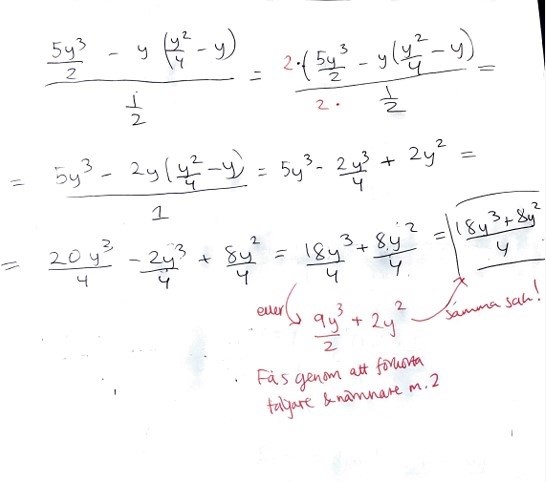 (5y³/2 - y(y²/4 - y))/(1/2) = 2·(5y³/2 - y(y²/4 - y)/(2· 1/2) =
= (5y³ - 2y(y²/4 - y))/1 = 5y³ - 2y³/4 + 2y² =
= 20y³/4 - 2y³/4 + 8y²/4 = 18y³/4 + 8y²/4 = (18y³ + 8y²)/4
eller 9y³/2 + 2y² samma sak!
Fås genom att förkorta
täljare & nämnare m. 2